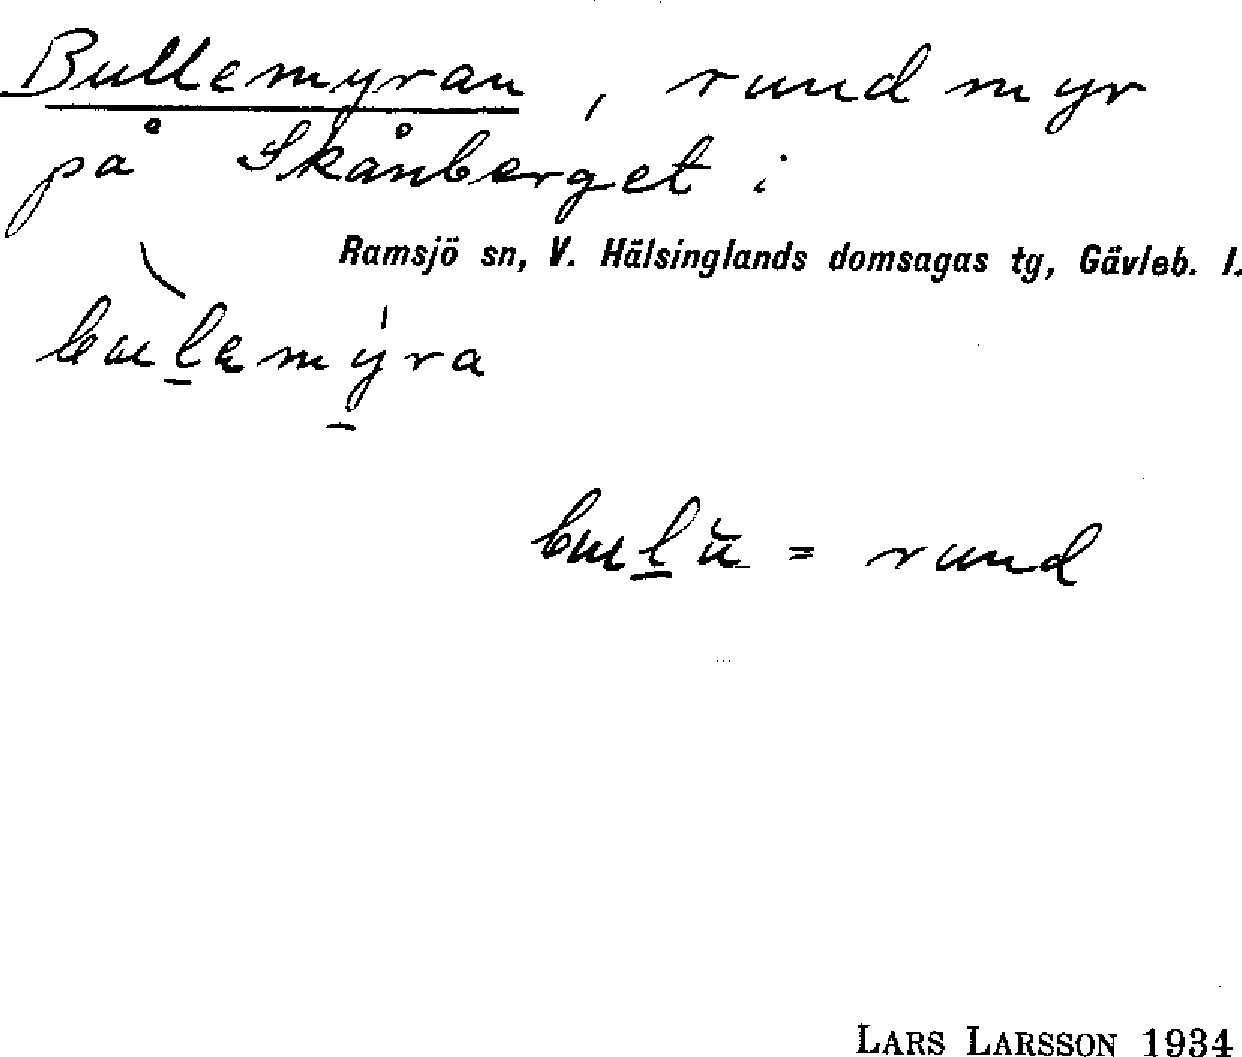 Bullemyran, rund myr
på Skånberget i
Ramsjö sn, V. Hälsinglands domsagas tg, Gävleb. l.
bulemýra
bulu = rund
LARS LARSSON 1934